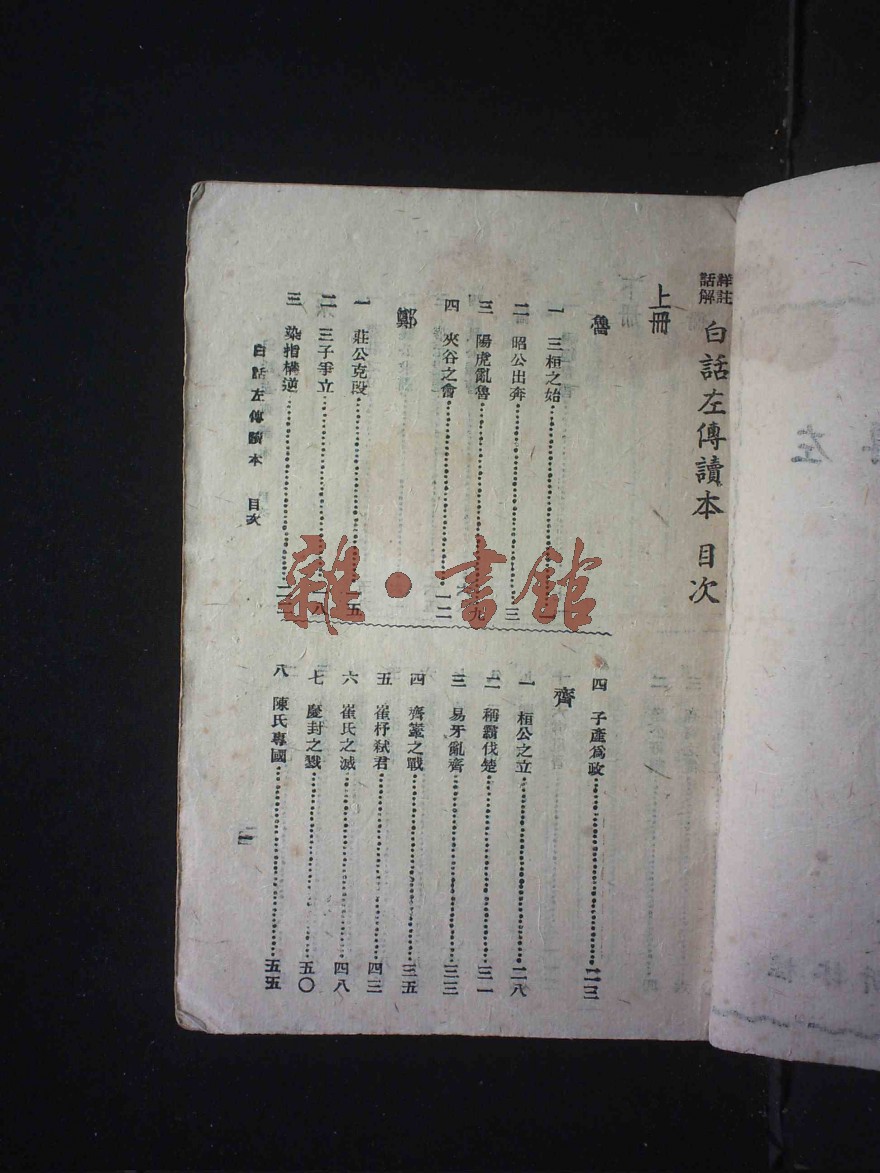 詳註
話解
白話左傳讀本 目次
上冊
魯
一 三桓之始
二 昭公出奔 三
三 陽虎亂魯 九
四 夾谷之會 一二
鄭
一 莊公克段 五
二 三子爭立 八
三 染指構逆
四 子產爲政 二三
齊
一 桓公之立 二八
二 稱霸伐楚 三一
三 易牙亂齊 三三
四 齊鞌之戰 三五
五 崔杼弒君 四三
六 崔氏之滅 四八
七 慶封之戮 五〇
八 陳氏專國 五五
白話左傳讀本 目次
雜·書館
左